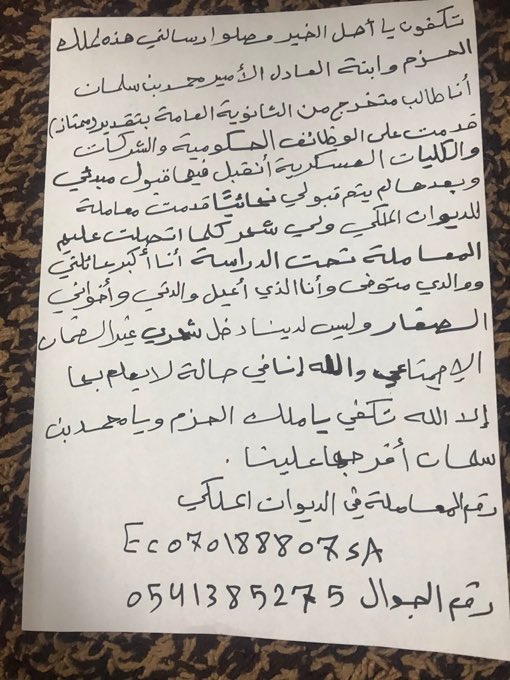 تكفون يا أهل الخير وصلوا رسالتي هذه لملك
الحزم وابنة العادل الأمير محمد بن سلمان
أنا طالب متخرج من الثانوية العامة بتقدير (ممتاز)
قدمت على الوظائف الحكومية والشركات
والكليات العسكرية أنقبل فيها قبول مبدئي
وبعدها لم يتم قبولي نهائيًا قدمت معاملة
للديوان الملكي ولي شهر كلما اتصلت عليهم
المعاملة تحت الدراسة أنا أكبر عائلتي
ووالدي متوفى وأنا الذي أعيل والدتي وأخواني
الصغار وليس لدينا دخل شهري غير الضمان
الاجتماعي والله إنا في حالة لا يعلم بها
إلا الله تكفي يا ملك الحزم ويا محمد بن
سلمان أفرجها علينا .
رقم المعاملة في الديوان الملكي
Ec070188807sA
رقم الجوال 0541385275